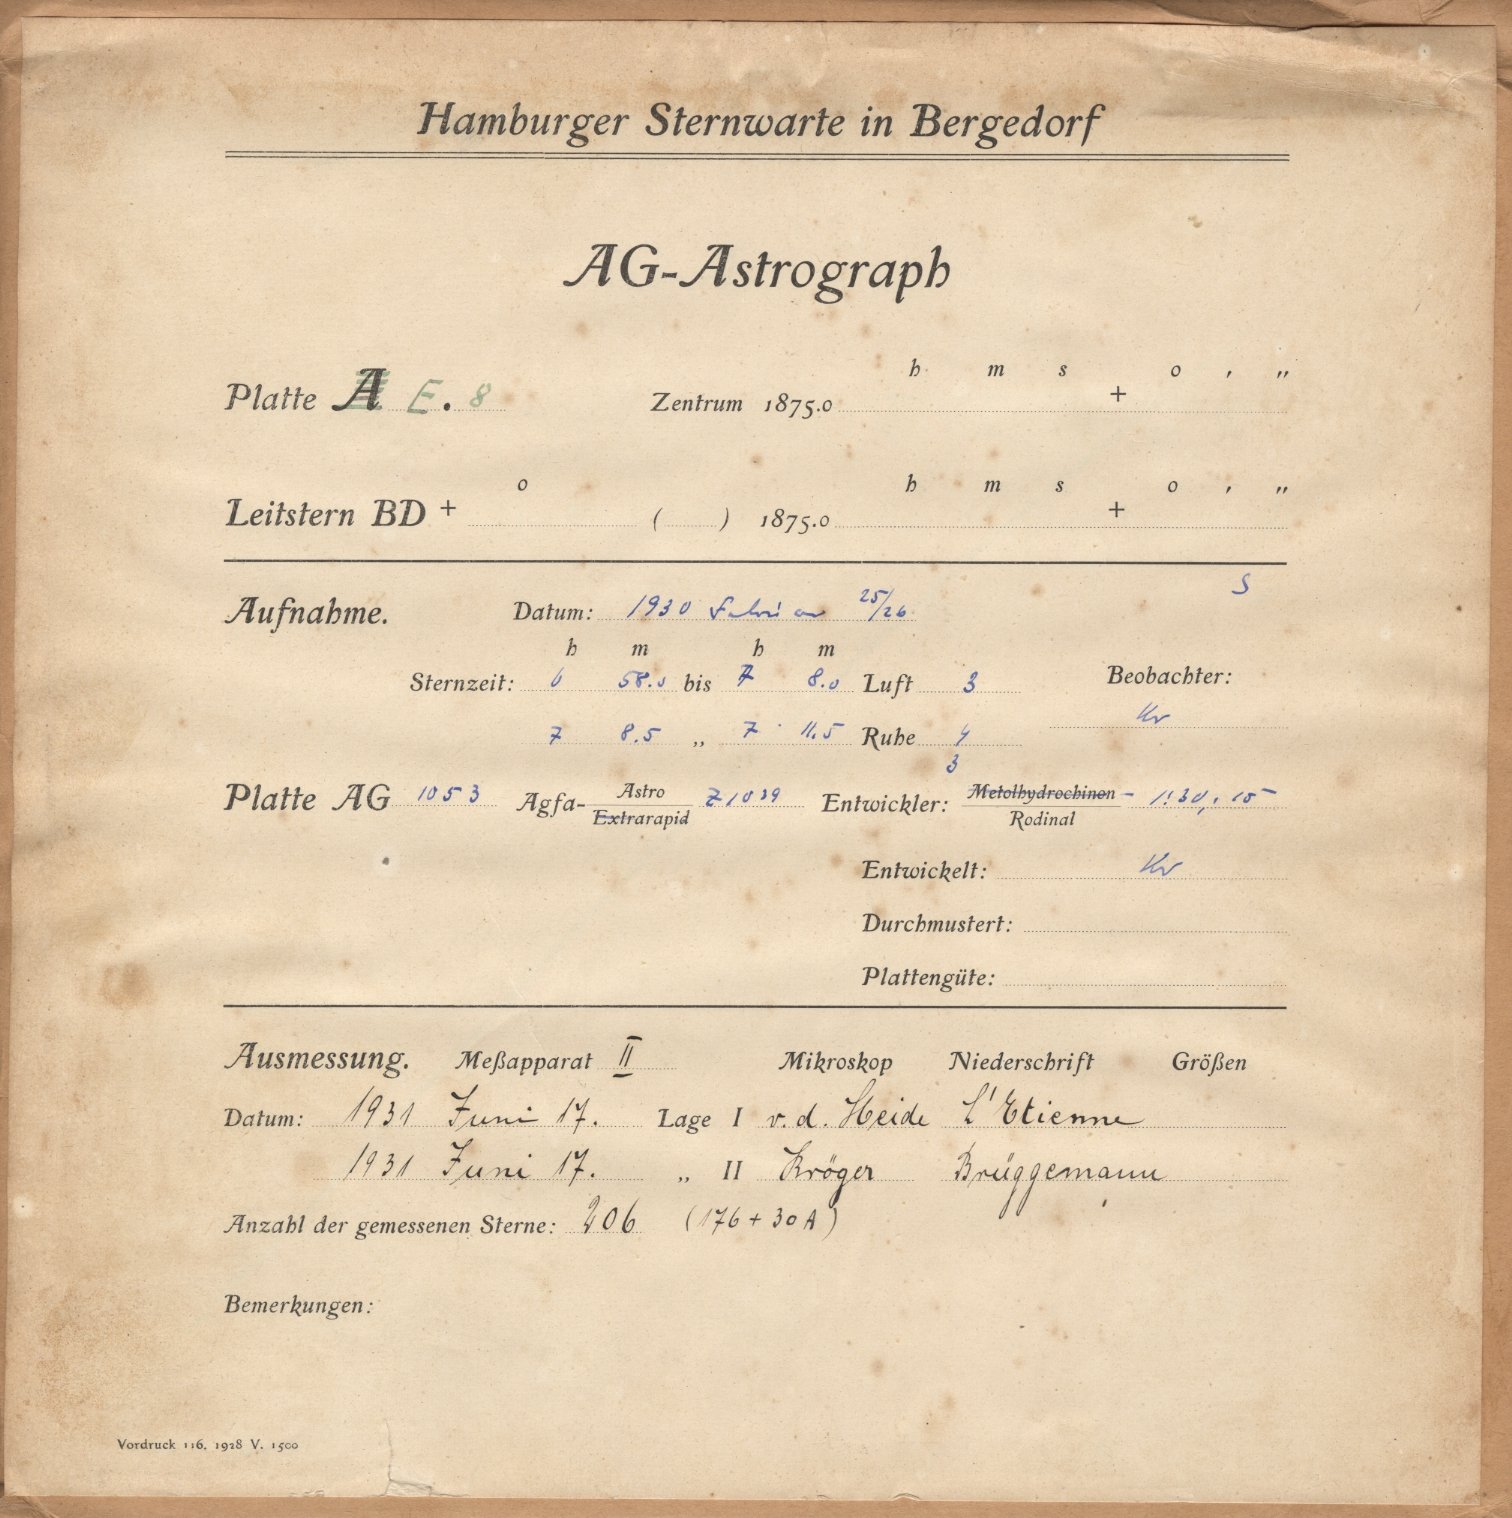 Hamburger Sternwarte in Bergedorf
AG-Astrograph
h m s o ' "
Platte A E. 8 Zentrum 1875.0 +
o h m s o ' "
Leitstern BD + ( ) 1875.0 +
S
Aufnahme. Datum: 1930 Februar 25/26
h m h m
Sternzeit: 6 58.0 bis 7 8.0 Luft 3 Beobachter:
Kr
7 8.5 " 7 11.5 Ruhe 4
3
Platte AG 1053 Agfa- Astro Z1039 Entwickler: Metolhydrochinon - 1:30, 15
Extrarapid Rodinal
Entwickelt: Kr
Durchmustert:
Plattengüte:
Ausmessung. Meßapparat II Mikroskop Niederschrift Größen
Datum: 1931 Juni 17. Lage I v. d. Heide L'Etienne
1931 Juni 17. " II Kröger Brüggemann
Anzahl der gemessenen Sterne: 206 (176 + 30 A)
Bemerkungen:
Vordruck 116. 1928 V. 1500